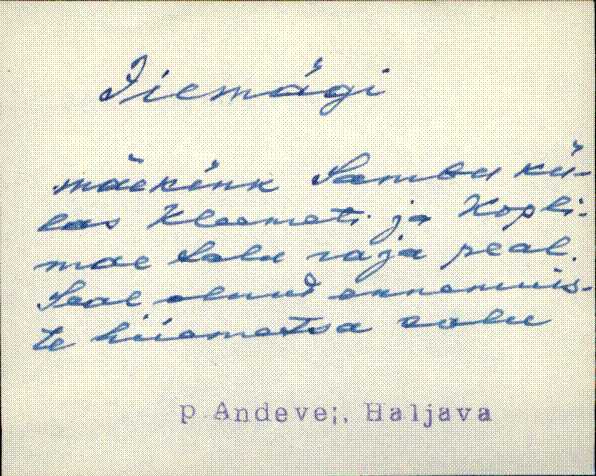 Iiemägi
mäekink Sambu kü-
las Kleemeti ja Kopli-
mäe talu raja peal.
Seal olnud ennemuis-
te hiiemetsa salu
p Andevei, Haljava